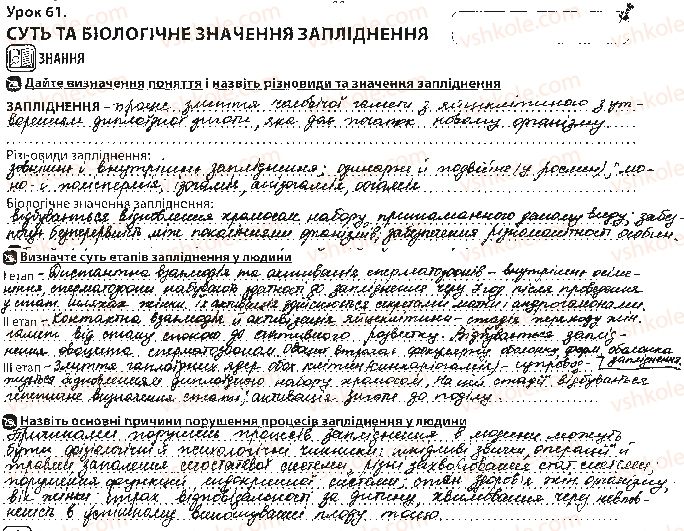 Урок 61.
СУТЬ ТА БІОЛОГІЧНЕ ЗНАЧЕННЯ ЗАПЛІДНЕННЯ
ЗНАННЯ
Дайте визначення поняття і назвіть різновиди та значення запліднення
ЗАПЛІДНЕННЯ – процес злиття чоловічої гамети з яйцеклітиною з ут-
воренням диплоїдної зиготи, яка дає початок новому організму.
Різновиди запліднення:
зовнішнє й внутрішнє запліднення; одинарне й подвійне (у рослин); мо-
но- й поліспермія, ізогамія, анізогамія, оогамія
Біологічне значення запліднення:
відбувається відновлення хромосом. набору, притаманного даному виду, забез-
печує безперервність між поколіннями організмів, забезпечення різноманітності особин.
Визначте суть етапів запліднення у людини
I етап – Дистантна взаємодія та активація сперматозоїдів – внутрішнє осіме-
ніння сперматозоїди набувають здатності до запліднення через 7 год після проведення
у стат. шляхах жінки, їх активація здійснюється секретами матки і андрогамонами.
II етап – Контактна взаємодія й активація яйцеклітини – стадія переходу жін.
гамети від стану спокою до активного розвитку. Відбувається заплід-
нення овоцита сперматозоїдом. Овоцит втрачає фолікулярні оболонки, форм. оболонка
запліднення.
III етап – Злиття гаплоїдних ядер обох клітин (синкаріогамія) – супровод-
жується відновленням диплоїдного набору хромосом. На цій стадії відбувається
генетичне визначення статі, активація зиготи до поділу
Назвіть основні причини порушення процесів запліднення у людини
Причинами порушень процесів запліднення в людини можуть
бути фізіологічні й психологічні чинники: шкідливі звички, операції й
травми, запалення сечостатевої системи, різні захворювання стат. системи,
порушення функцій ендокринної системи, стан здоров'я жін. організму,
вік жінки, страх відповідальності за дитину, хвилювання через невпев-
неність в успішному виношуванні плоду тощо.
vshkole.com